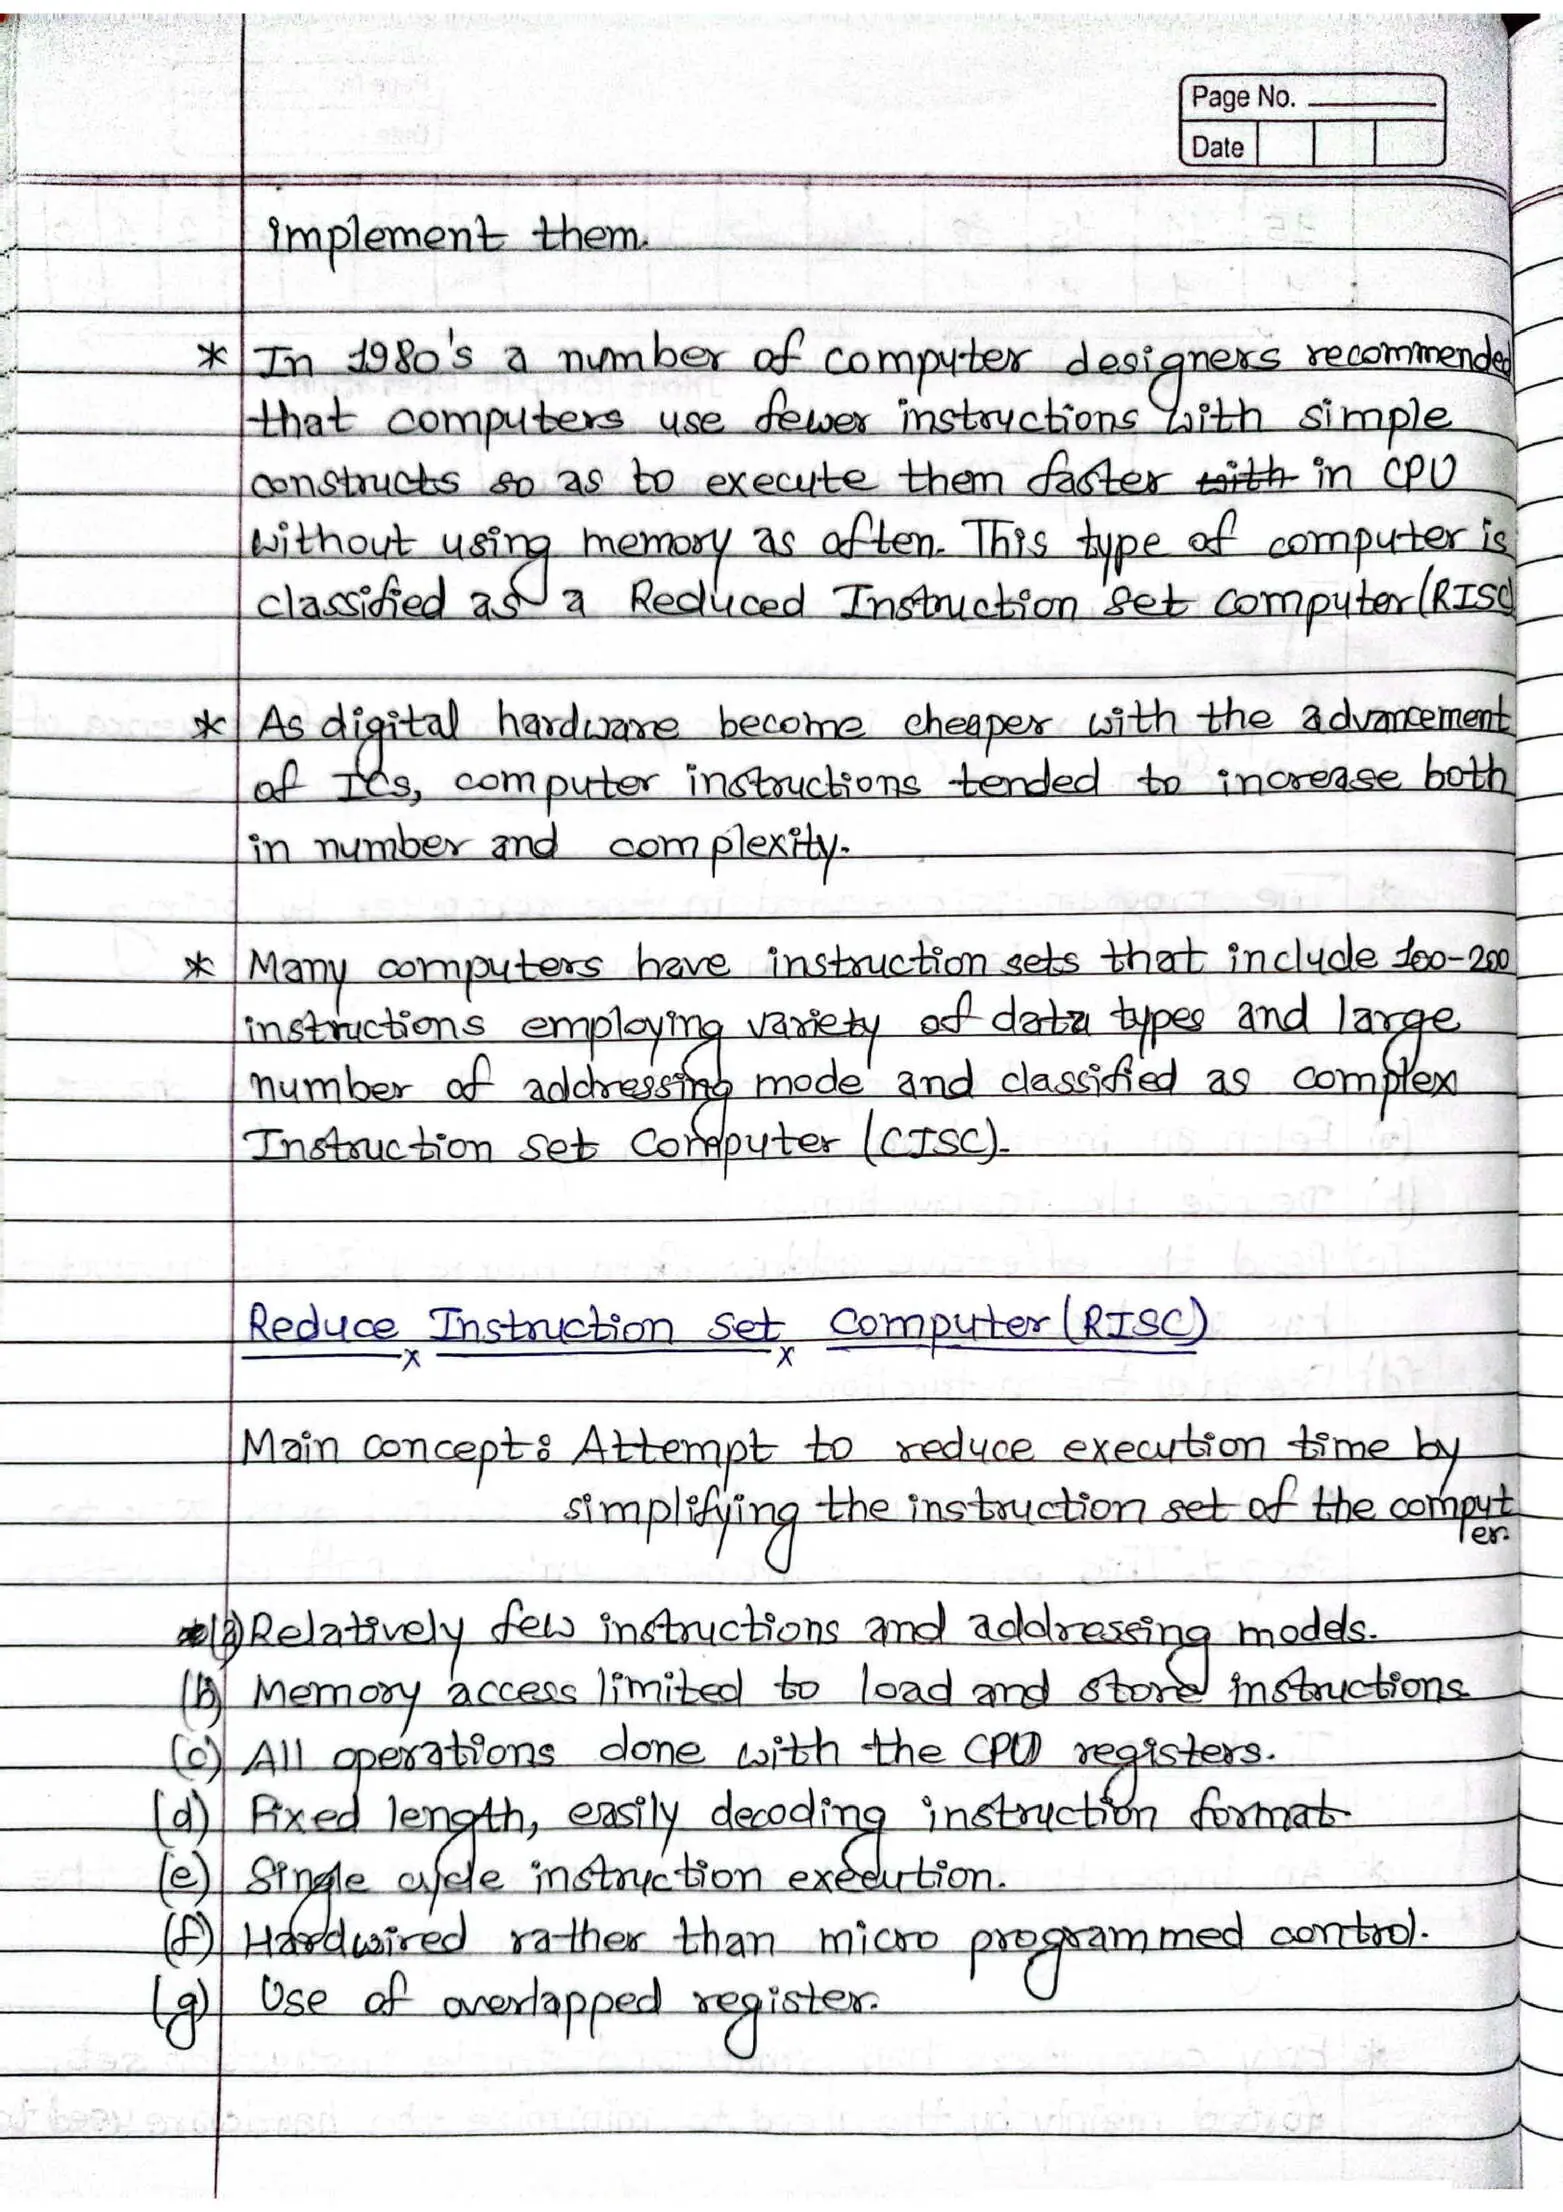 Page No.
Date
implement them.
* In 1980's a number of computer designers recommended
that computers use fewer instructions with simple
constructs so as to execute them faster with in CPU
without using memory as often. This type of computer is
classified as a Reduced Instruction Set computer (RISC)
* As digital hardware become cheaper with the advancement
of ICs, computer instructions tended to increase both
in number and complexity.
* Many computers have instruction sets that include 100-200
instructions employing variety of data types and large
number of addressing mode and classified as complex
Instruction set Computer (CISC).
Reduce Instruction Set Computer (RISC)
Main concept: Attempt to reduce execution time by
simplifying the instruction set of the comput
er.
(a) Relatively few instructions and addressing models.
(b) Memory access limited to load and store instructions
(c) All operations done with the CPU registers.
(d) Fixed length, easily decoding instruction format
(e) Single cycle instruction execution.
(f) Hardwired rather than micro programmed control.
(g) Use of overlapped register.